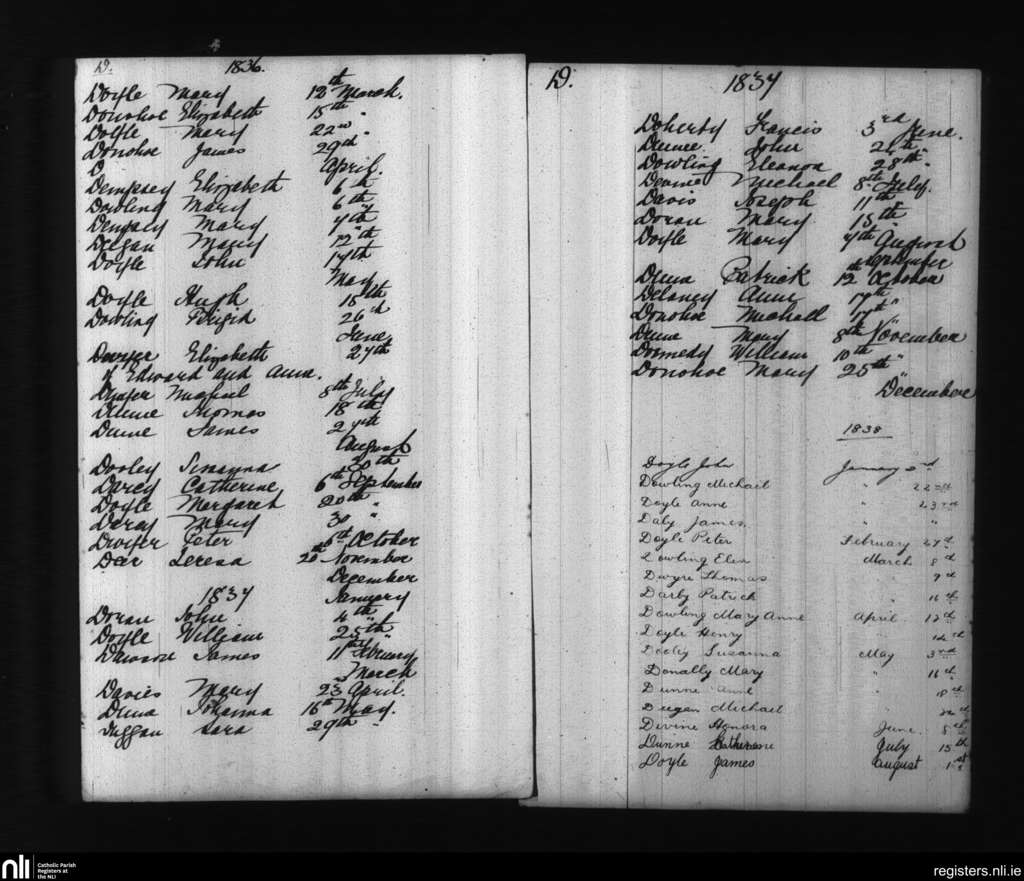 D. 1836.
Doyle Mary 12th March.
Donohoe Elizabeth 15th "
Doyle Mary 22nd "
Donohoe James 29th
April.
Dempsey Elizabeth 6th
Dowling Mary 6th "
Dempsey Mary 7th
Deegan Mary 12th
Doyle John 17th
May
Doyle Hugh 15th
Dowling Brigid 26th
June
Dwyer Elizabeth 27th
of Edward and Anna.
Dwyer Michael 8th July
Dunne Thomas 18th
Dunne James 27th
August
Dooley Susanna 30th
Darcy Catherine 6th September
Doyle Margaret 20th
Darcy Mary 30 "
Dwyer Peter 6th October
Dear Teresa 20th November
December
1837 January
Doran John 4th
Doyle William 25th "
Dawson James 11th February
March
Davies Mary 23 April.
Duna Johanna 16th May.
Duggan Sara 29th "
D. 1837
Doherty Francis 3rd June.
Dunne John 21st "
Dowling Eleanor 28th "
Michael 8th July.
Davis Joseph 11th
Doran Mary 15th
Doyle Mary 7th August
September
Duna Patrick 12th October
Delaney Anne 17th
Donohoe Michael 17th "
Dunne Mary 8th November
William 10th
Donohoe Mary 25th "
December
1838
Doyle John January 2nd
Dowling Michael " 22nd
Doyle Anne " 23rd
Daly James " "
Doyle Peter February 27th
Dowling Ellen March 8th
Dwyre Thomas 9th
Darby Patrick " 16th
Dowling Mary Anne April 12th
Doyle Henry " 12th
Dooly Susanna May 3rd
Donally Mary " 16th
Dunne Anne " 18th
Deegan Michael "
Divine Honora June 8th
Dunne Catherine July 15th
Doyle James August 1st
nli Catholic Parish
Registers at
the NLI
registers.nli.ie